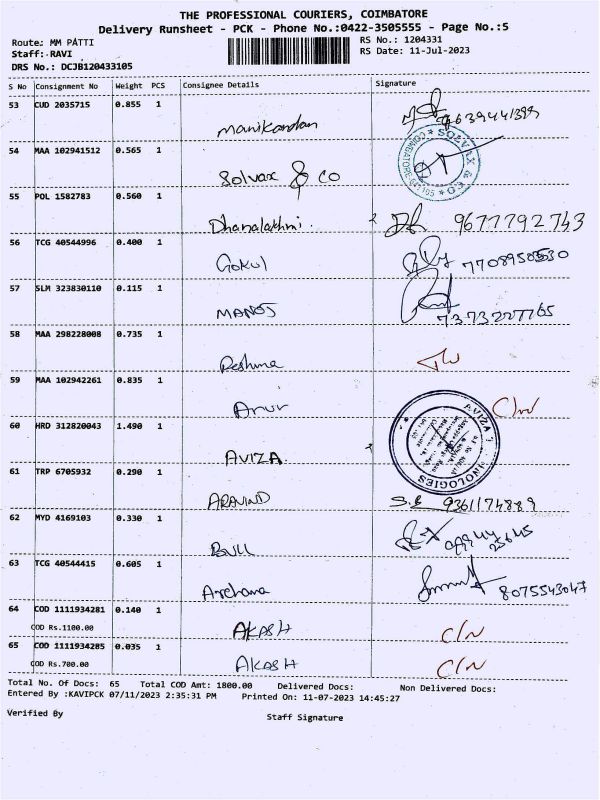 THE PROFESSIONAL COURIERS, COIMBATORE
Delivery Runsheet - PCK - Phone No.:0422-3505555 - Page No.:5
Route: MM PATTI
RS No.: 1204331
Staff:-RAVI
RS Date: 11-Jul-2023
DRS No.: DCJB120433105
S No Consignment No Weight PCS Consignee Details Signature
53 CUD 2035715 0.855 1
Manikandan 9639441399
54 MAA 102941512 0.565 1
Solvax & Co
55 POL 1582783 0.560 1
Dhanalakhmi. 9677792743
56 TCG 40544996 0.400 1
Gokul
57 SLM 323830110 0.115 1
MANOJ 7373227765
58 MAA 298228008 0.735 1
Reshma
59 MAA 102942261 0.835 1
C/N
60 HRD 312820043 1.490 1
AVIZA
61 TRP 6705932 0.290 1
ARAVIND 9361174889
62 MYD 4169103 0.330 1
BULL
63 TCG 40544415 0.605 1
Archana 8075543047
64 COD 1111934281 0.140 1
COD Rs.1100.00
AKASH C/N
65 COD 1111934285 0.035 1
COD Rs.700.00
AKASH C/N
Total No. Of Docs: 65 Total COD Amt: 1800.00 Delivered Docs: Non Delivered Docs:
Entered By :KAVIPCK 07/11/2023 2:35:31 PM Printed On: 11-07-2023 14:45:27
Verified By Staff Signature